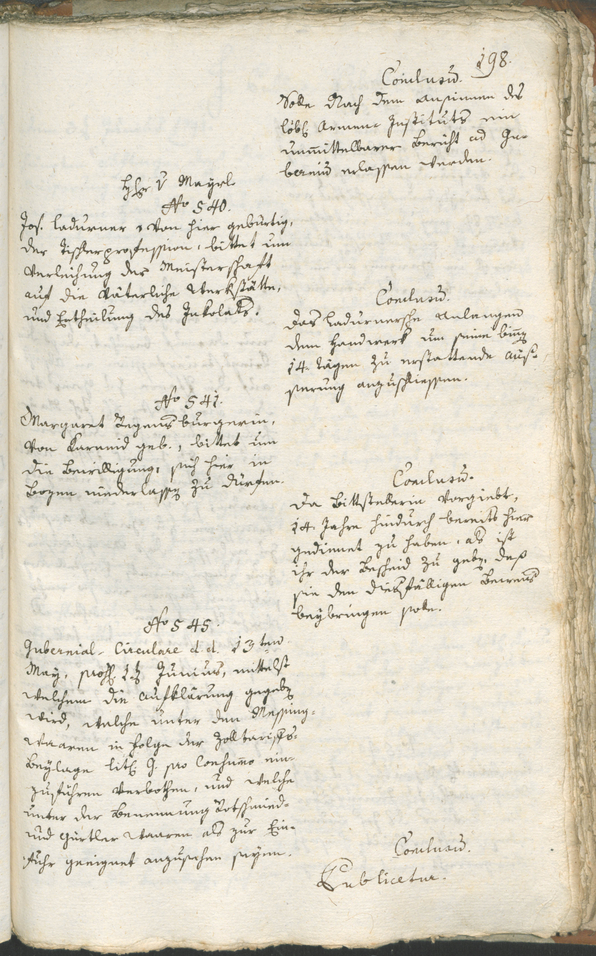 198.
Conclusum.
Solle Nach dem ansinnen des
löbl. Armen-Instituts ein
unmittelbarer Bericht ad Gu-
bernium erlassen werden.
H. Hr. v Mayrl
No 540.
Jos. Ladurner, von hier gebürtig,
der Tischlerprofession, bittet um
Verleihung der Meisterschaft
auf die väterliche Werkstätte,
und Ertheilung des Inkolats.
Conclusum.
das Ladurnersche anlangen
dem Handwerk um seine binnen
14 tägen zu erstattende äus-
serung anzuschliessen.
No 541.
Margaret Regensburgerin,
von Karneid geb., bittet um
die Bewilligung, sich hier in
Bozen niederlassen zu dürfen.
Conclusum.
Da Bittstellerin vorgiebt,
14 Jahre hindurch bereits hier
gedienet zu haben, als ist
ihr der Bescheid zu geben, daß
sie den diesfälligen Beweis
beybringen solle.
No 545.
Gubernial-Circulare d. d. 13ten
May, 1ten Junius, mittelst
welchem die Aufklärung gegeben
wird, welche unter den Messing-
waaren in folge der Zolltariffs-
Beylage litt. G. pro Consumo ein-
zuführen verbothen, und welche
unter der Benennung Rothschmied-
und Gürtler waaren als zur Ein-
fuhr geeignet anzusehen seyen.
Conclusum.
Publicetur.